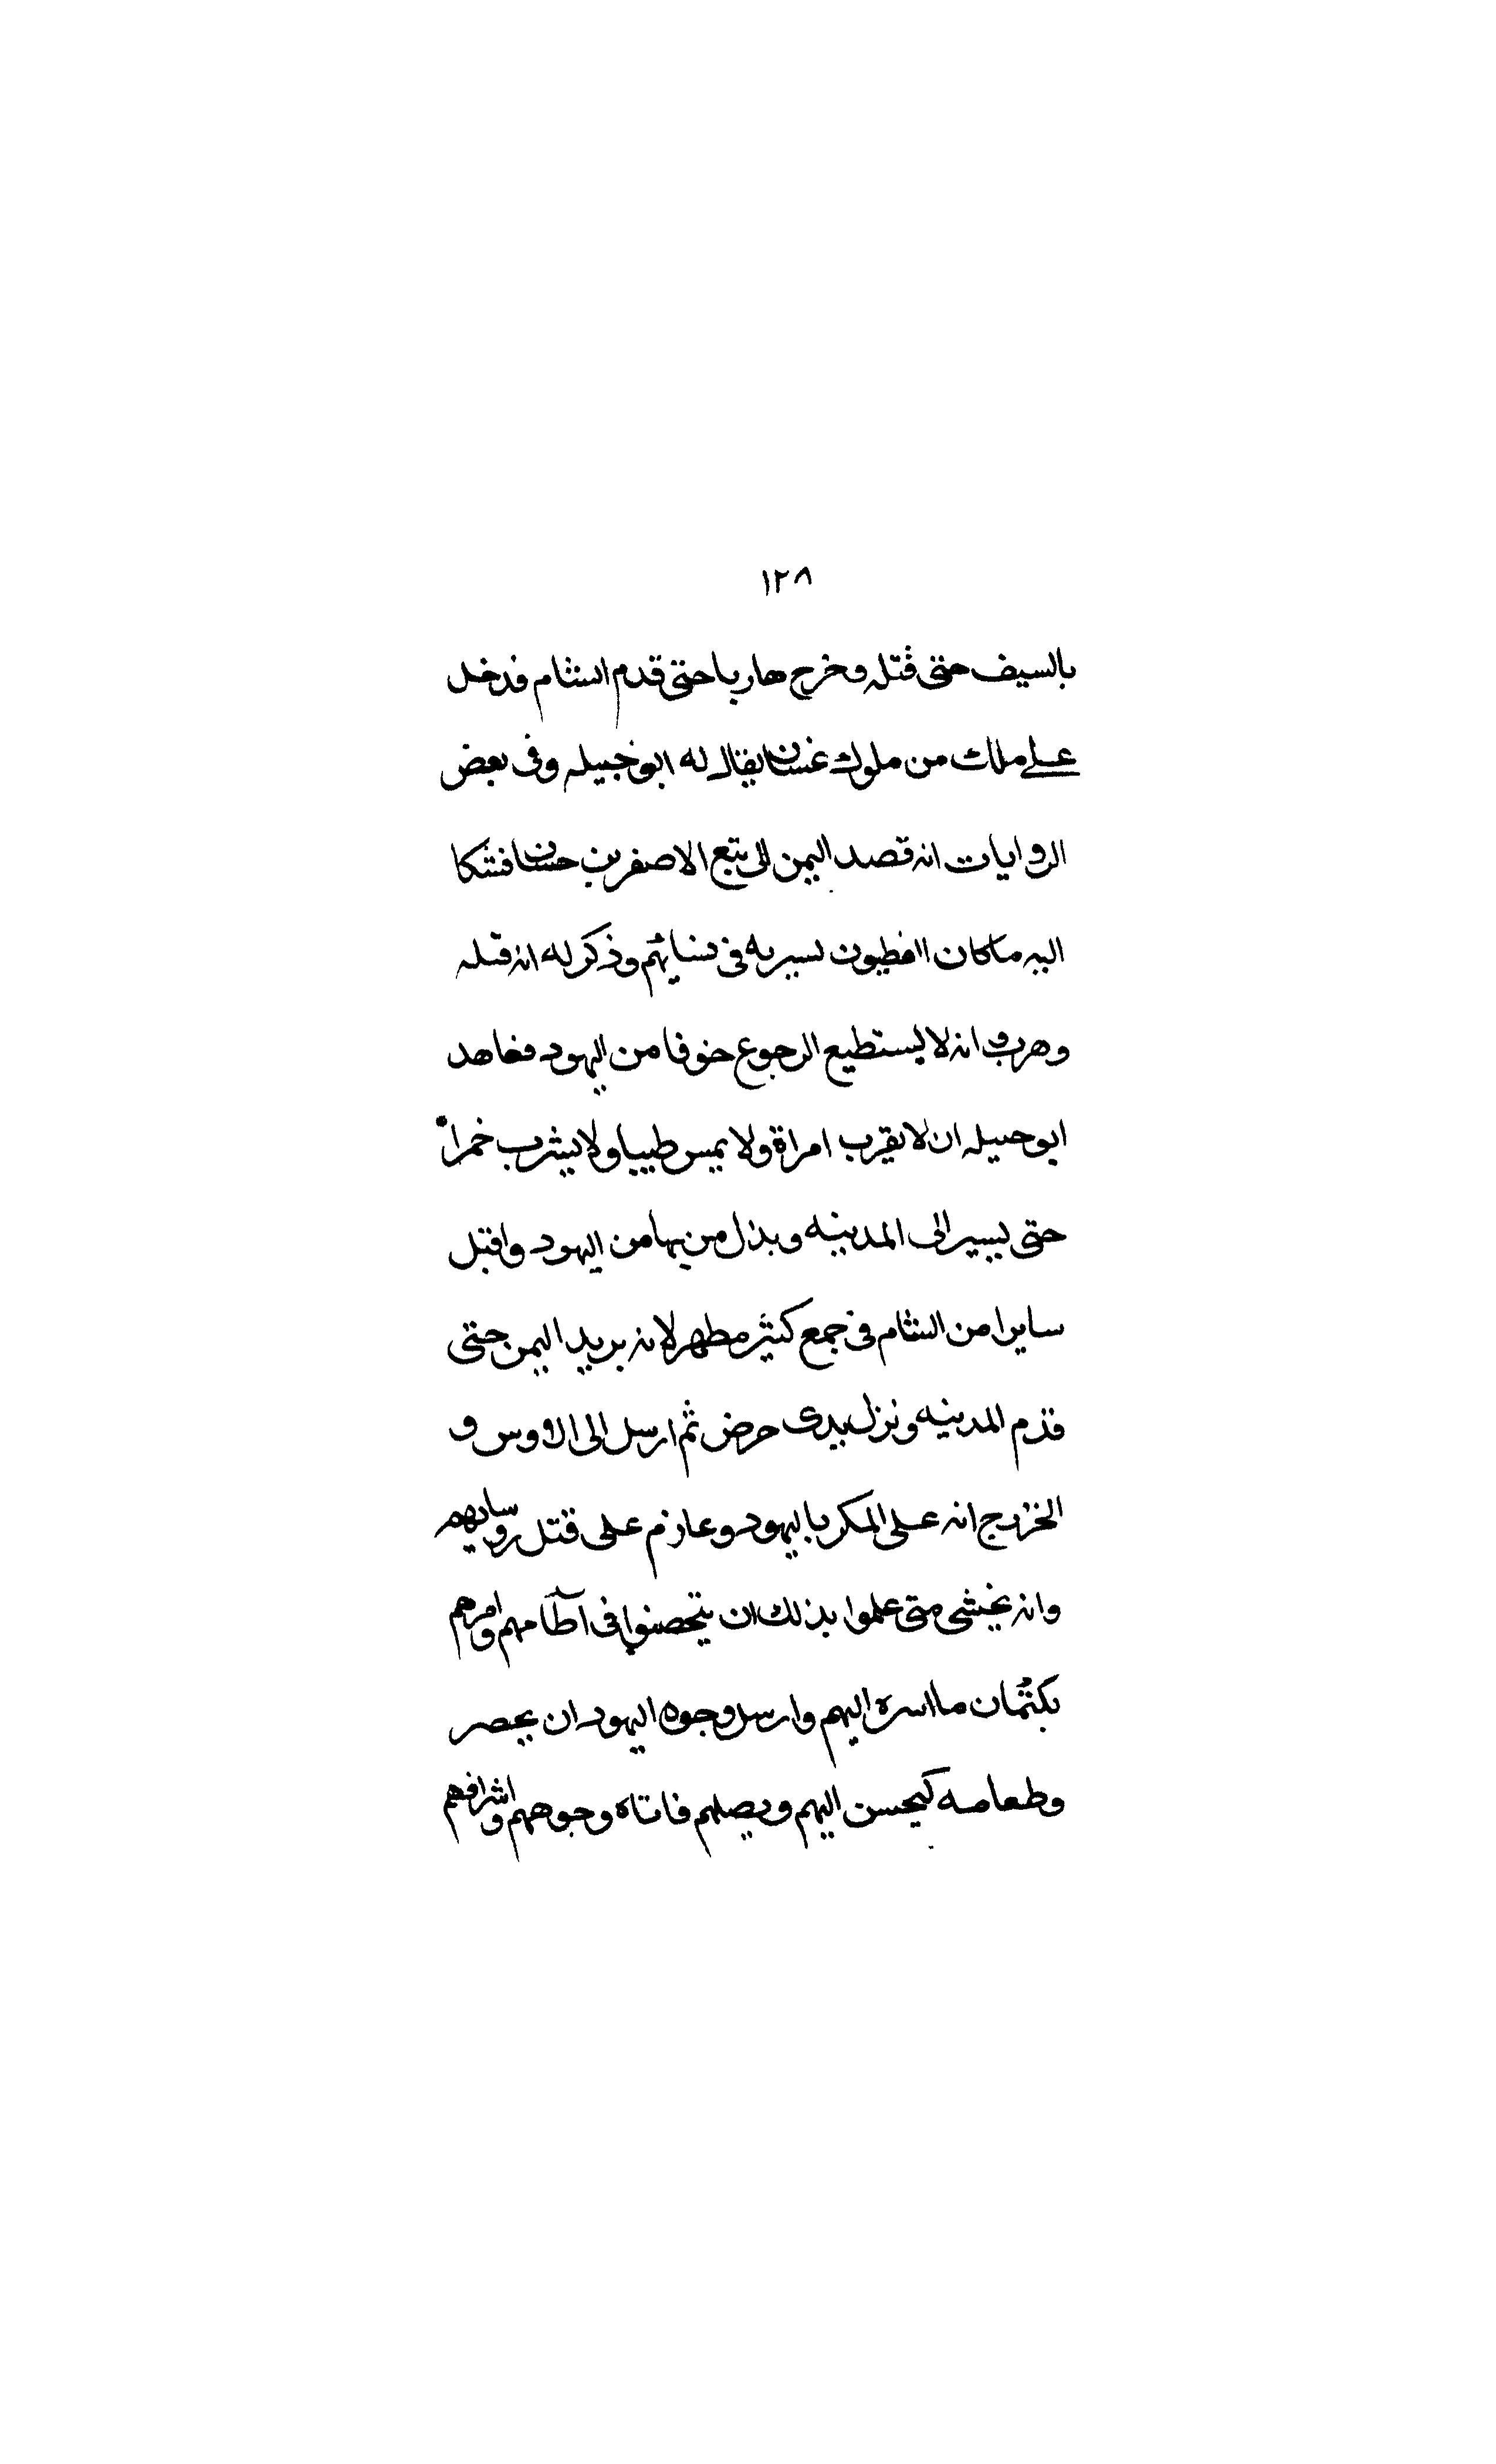 ١٢٨
بالسيف حتى قتله وخرج هاربا حتى قدم الشام فدخل
على ملك من ملوك غسان يقال له ابو جبيله وفى بعض
الروايات انه قصد اليمن الى تبع الاصغر بن حسان فشكا
اليه ما كان الفطيون يسير به فى نسايهم وذكر له انه قتله
وهرب وانه لا يستطيع الرجوع خوفا من اليهود فعاهد
ابو جبيله ان لا يقرب امراة ولا يمس طيبا ولا يشرب خمرا
حتى يسير الى المدينه ويذل من بها من اليهود واقبل
سايرا من الشام فى جمع كثير مظهر لانه يريد اليمن حتى
قدم المدينه ونزل بدى حرض ثم ارسل الى الاوس و
الخزرج انه على المكر باليهود وعازم على قتل روسايهم
وانه يخشى متى علموا بذلك ان يتحصنوا فى آطامهم وامرهم
بكتمان ما اسره اليهم وارسل وجوه اليهود ان يحصر
وطعامه كيحسن اليهم ويصلهم فاتاه وجوههم واشرافهم